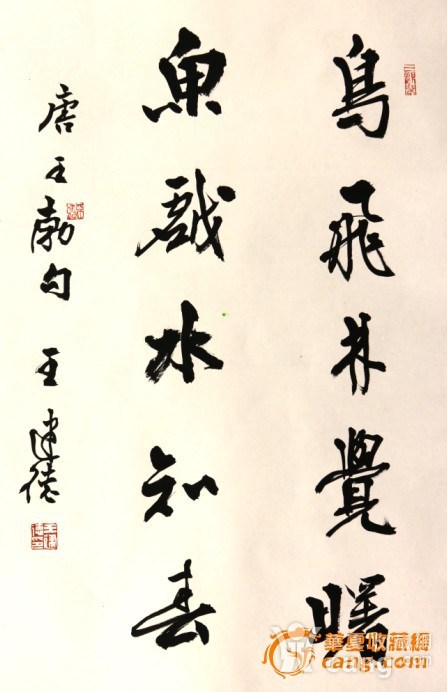 鳥飛林覺曙
魚戲水知春
唐王勃句 王建德
華夏收藏網
cang.com